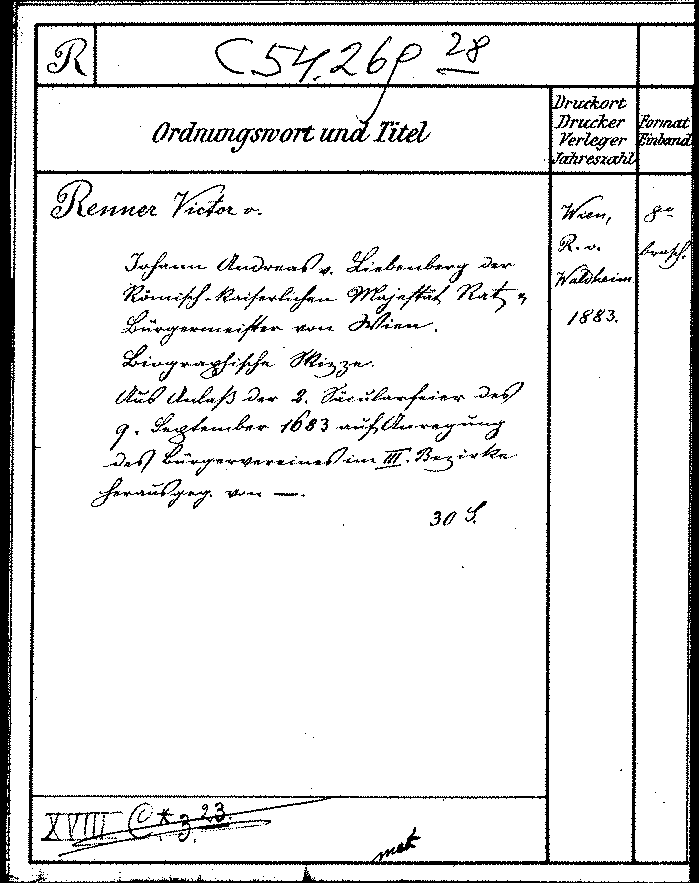 R
C.54.269 28
Ordnungswort und Titel
Druckort
Drucker
Verleger
Jahreszahl
Format
Einband
Renner Victor v.
Johann Andreas v. Liebenberg der
Römisch-kaiserlichen Majestät Rat u
Bürgermeister von Wien.
Biographische Skizze.
Aus Anlaß der 2. Säcularfeier des
9. September 1683 auf Anregung
des Bürgervereines im III. Bezirke
herausgeg. von —.
30 S.
Wien,
R. v.
Waldheim
1883.
8°
brosch.
XVIII C * 3. 23.